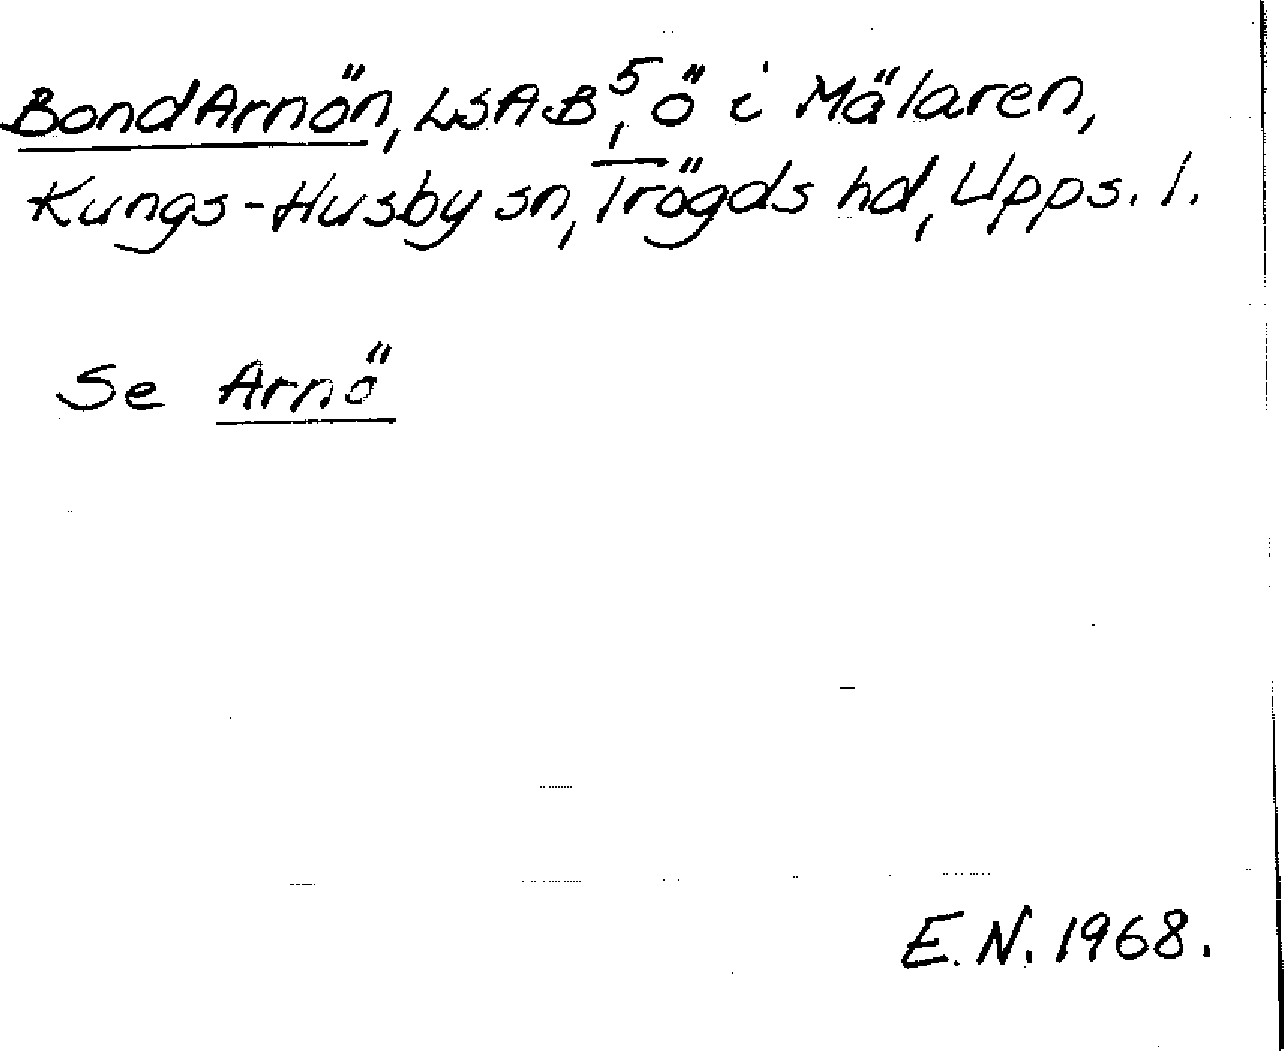 BondArnön, LSAB⁵, ö i Mälaren,
Kungs-Husby sn, Trögds hd, Upps. l.
Se Arnö
E. N. 1968.